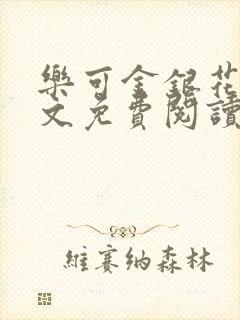 樂可金銀花
文免費閱讀
維賽纳森林